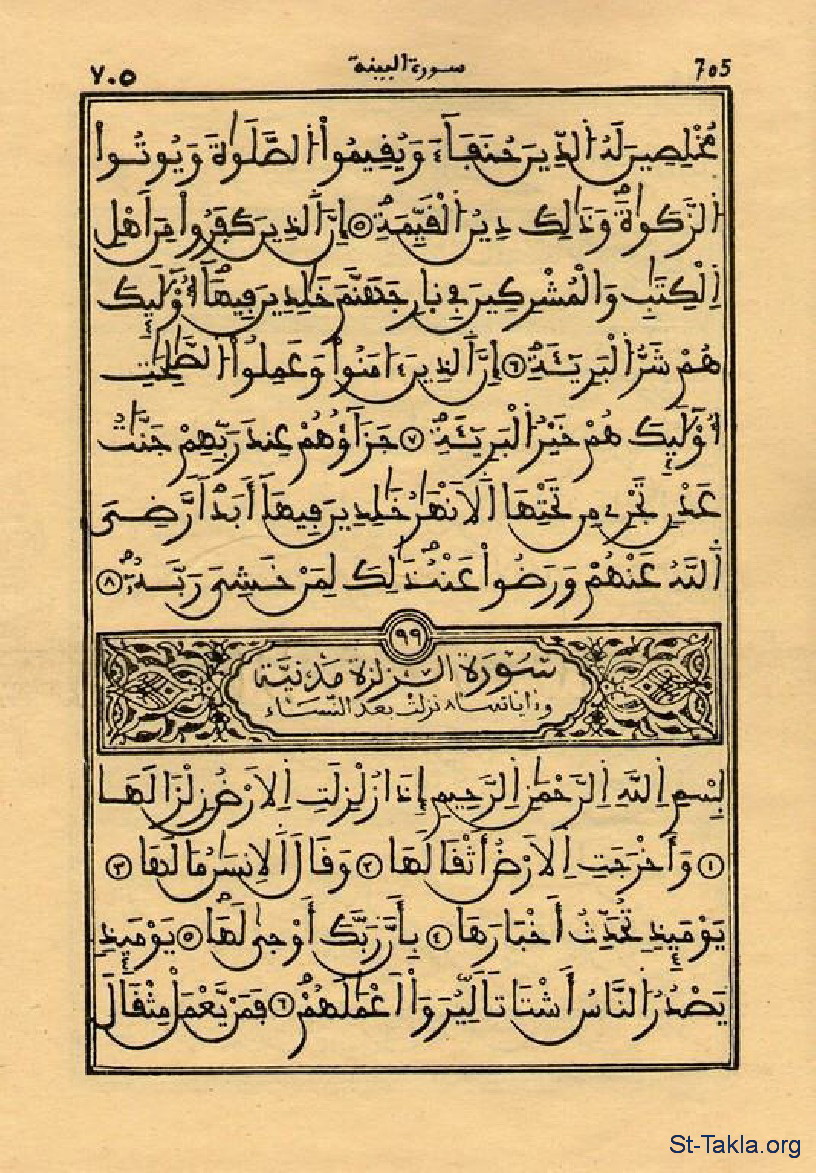 ٧٠٥ سورة البينة 705
مُخْلِصِينَ لَهُ اُ۬لدِّينَ حُنَفَآءَ وَيُقِيمُوا۟ اُ۬لصَّلَوٰةَ وَيُوتُوا۟
اُ۬لزَّكَوٰةَۖ وَذَٰلِكَ دِينُ اُ۬لْقَيِّمَةِۖ ٥ إِنَّ اَ۬لذِينَ كَفَرُوا۟ مِنَ اَهْلِ
اِ۬لْكِتَٰبِ وَالْمُشْرِكِينَ فِے نارِ جَهَنَّمَ خَٰلِدِينَ فِيهَآۖ أُو۟لَٰٓئِكَ
هُمْ شَرُّ اُ۬لْبَرِيٓـَٔةِۖ ٦ إِنَّ اَ۬لذِينَ ءَامَنُوا۟ وَعَمِلُوا۟ اُ۬لصَّٰلِحَٰتِ
أُو۟لَٰٓئِكَ هُمْ خَيْرُ اُ۬لْبَرِيٓـَٔةِۖ ٧ جَزَآؤُهُمْ عِندَ رَبِّهِمْ جَنَّٰتُ
عَدْنٍ تَجْرِے مِن تَحْتِهَا اَ۬لَانْهَٰرُ خَٰلِدِينَ فِيهَآ أَبَداٗ رَّضِيَ
اَ۬للَّهُ عَنْهُمْ وَرَضُوا۟ عَنْهُۖ ذَٰلِكَ لِمَنْ خَشِيَ رَبَّهُۥۖ ٨
٩٩
سُورَةُ الزلزلة مَدَنِيَّة
وءاياتها ٨ نزلت بعد النِّسَاء
بِسْمِ اِ۬للَّهِ اِ۬لرَّحْمَٰنِ اِ۬لرَّحِيمِ إِذَا زُلْزِلَتِ اِ۬لَارْضُ زِلْزَالَهَا
١ وَأَخْرَجَتِ اِ۬لَارْضُ أَثْقَالَهَا ٢ وَقَالَ اَ۬لِانسَٰنُ مَا لَهَا ٣
يَوْمَئِذٍ تُحَدِّثُ أَخْبَارَهَا ٤ بِأَنَّ رَبَّكَ أَوْحَىٰ لَهَاۖ ٥ يَوْمَئِذٍ
يَصْدُرُ اُ۬لنَّاسُ أَشْتَاتاٗ لِّيُرَوَا۟ اَعْمَٰلَهُمْۖ ٦ فَمَنْ يَّعْمَلْ مِثْقَالَ
St-Takla.org